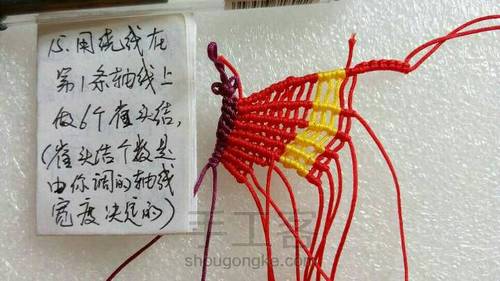 15.用绕线在
第1条轴线上
做6个雀头结,
(雀头结个数是
由你调的轴线
宽度决定的)
手工客
shougongke.com